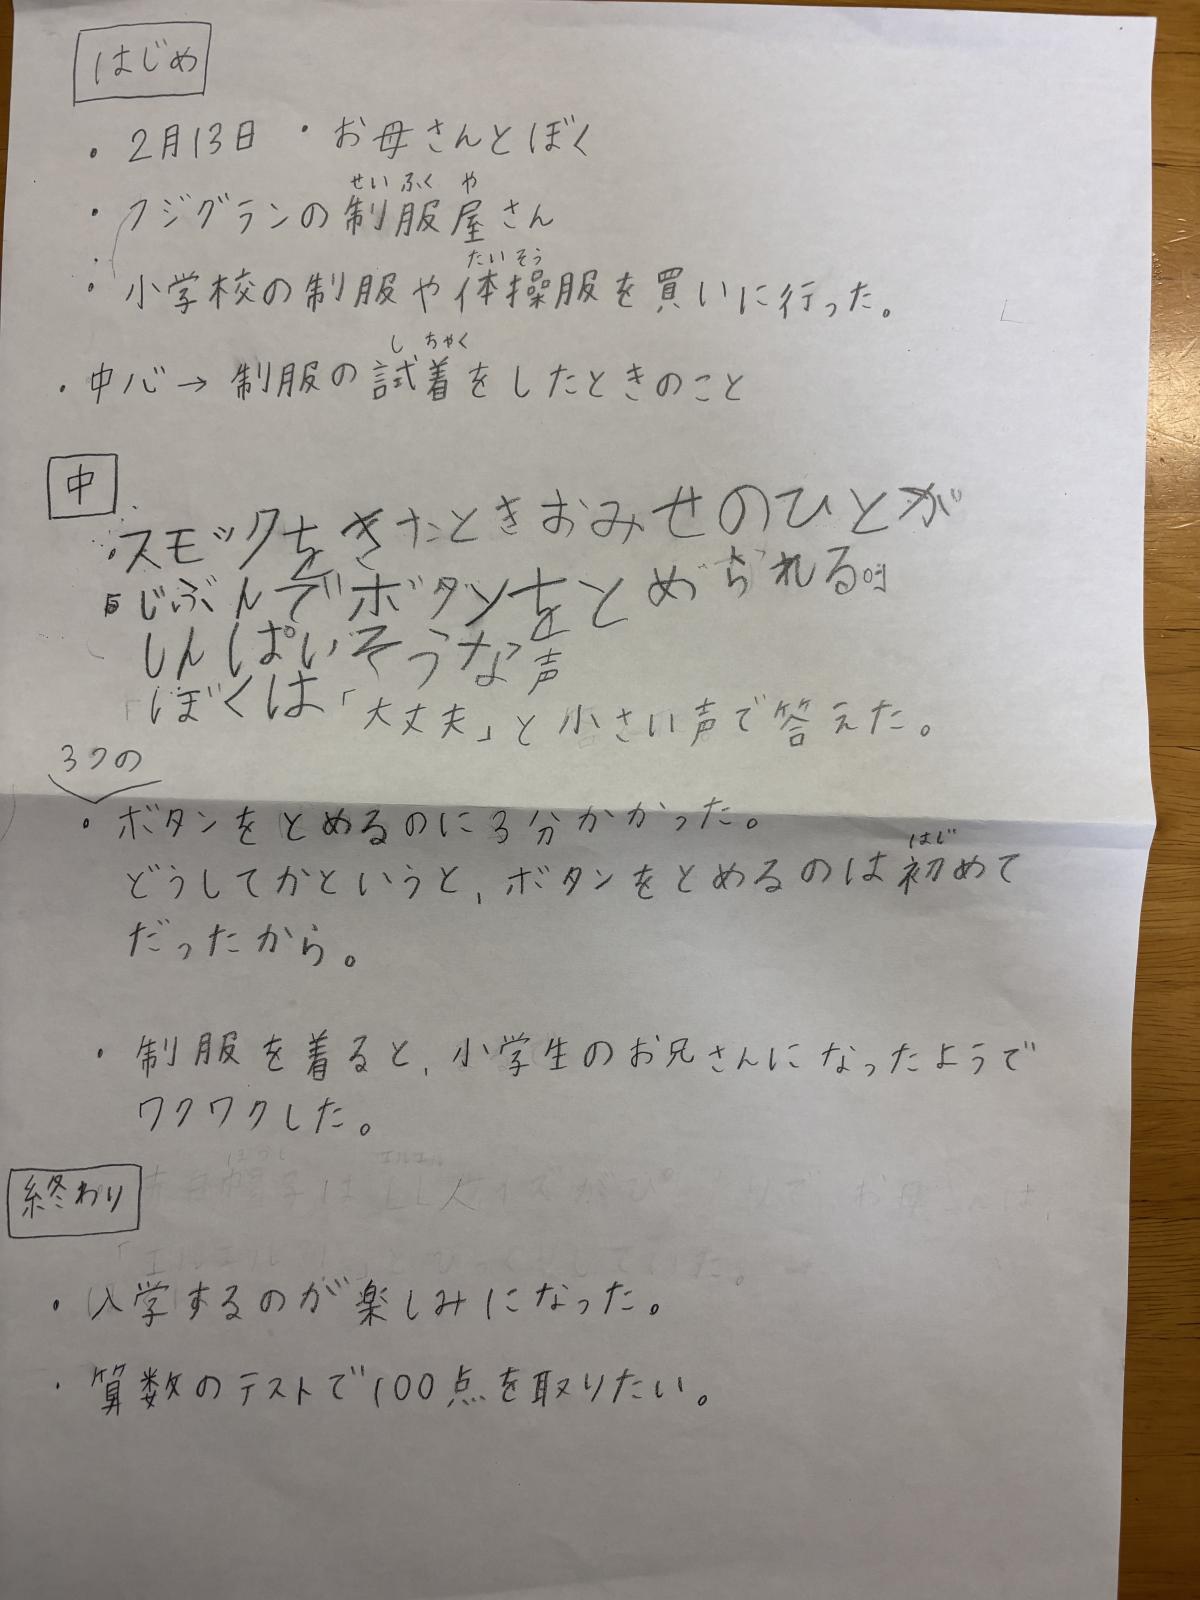 はじめ
・2月13日 ・お母さんとぼく
せいふくや
・フジグランの制服屋さん
たいそう
・小学校の制服や体操服を買いに行った。
しちゃく
・中心→制服の試着をしたときのこと
中
・スモックをきたときおみせのひとが
じぶんでボタンをとめられる
しんぱいそうな声
ぼくは「大丈夫」と小さい声で答えた。
3つの
・ボタンをとめるのに3分かかった。
はじ
どうしてかというと、ボタンをとめるのは初めて
だったから。
・制服を着ると、小学生のお兄さんになったようで
ワクワクした。
終わり
・入学するのが楽しみになった。
・算数のテストで100点を取りたい。